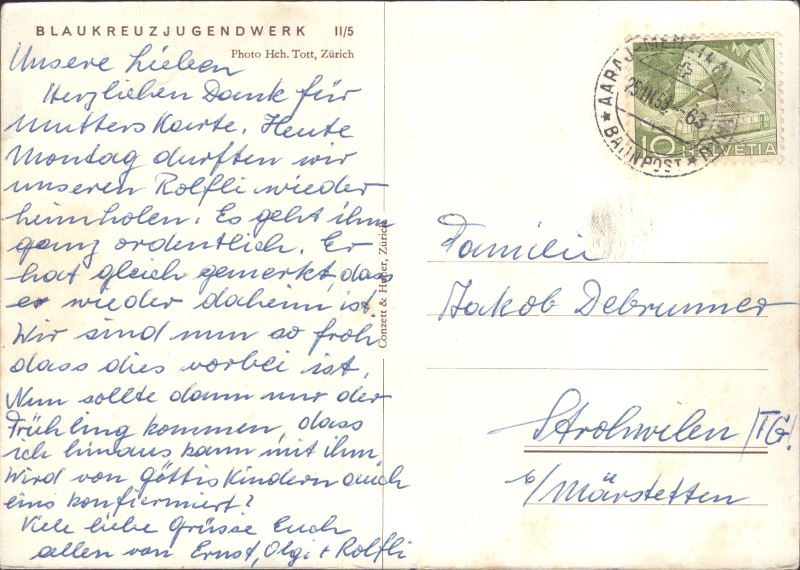 BLAUKREUZJUGENDWERK II/5
Photo Hch. Tott, Zürich
Unsere Lieben
Herzlichen Dank für
Mutters Karte. Heute
Montag durften wir
unseren Rolfli wieder
heimholen. Es geht ihm
ganz ordentlich. Er
hat gleich gemerkt, dass
er wieder daheim ist.
Wir sind nun so froh
dass dies vorbei ist.
Nun sollte dann nur der
Frühling kommen, dass
ich hinaus kann mit ihm
Wird von Göttis Kindern auch
eins konfirmiert?
Viele liebe Grüsse Euch
allen von Ernst, Olgi + Rolfli
Conzett & Huber, Zürich
BAHNPOST
10 HELVETIA
Familie
Jakob Debrunner
Strohwilen /TG.
b/Märstetten